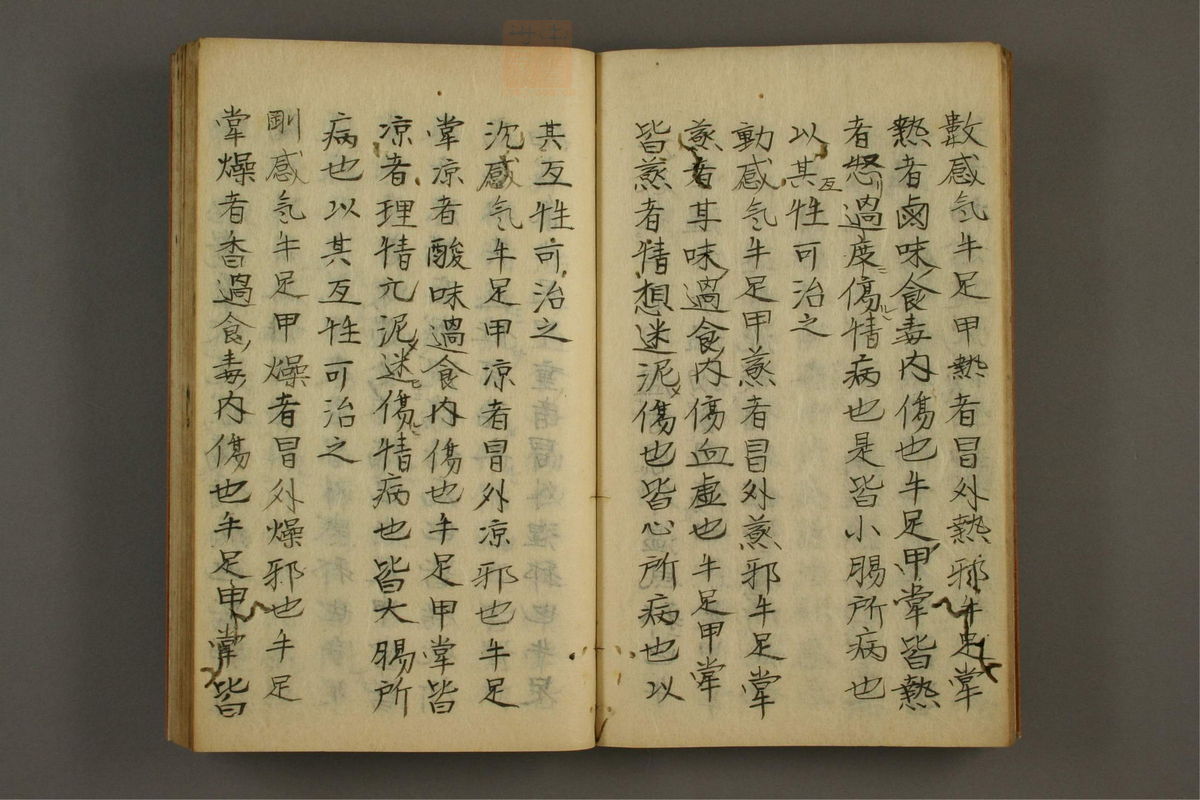 數感氣牛足甲熱者冒外熱邪牛足掌
熱者鹵味食毒内傷也牛足甲掌皆熱
者怒過度傷情病也是皆小腸所病也
以其互性可治之
動感氣牛足甲蒸者冒外蒸邪牛足掌
蒸者其味過食内傷血虛也牛足甲掌
皆蒸者情想迷泥傷也皆心所病也以
其互性可治之
沉感氣牛足甲凉者冒外凉邪也牛足
掌凉者酸味過食内傷也牛足甲掌皆
凉者理情亢泥迷傷情病也皆大腸所
病也以其互性可治之
剛感氣牛足甲燥者冒外燥邪也牛足
掌燥者香過食毒内傷也牛足甲掌皆